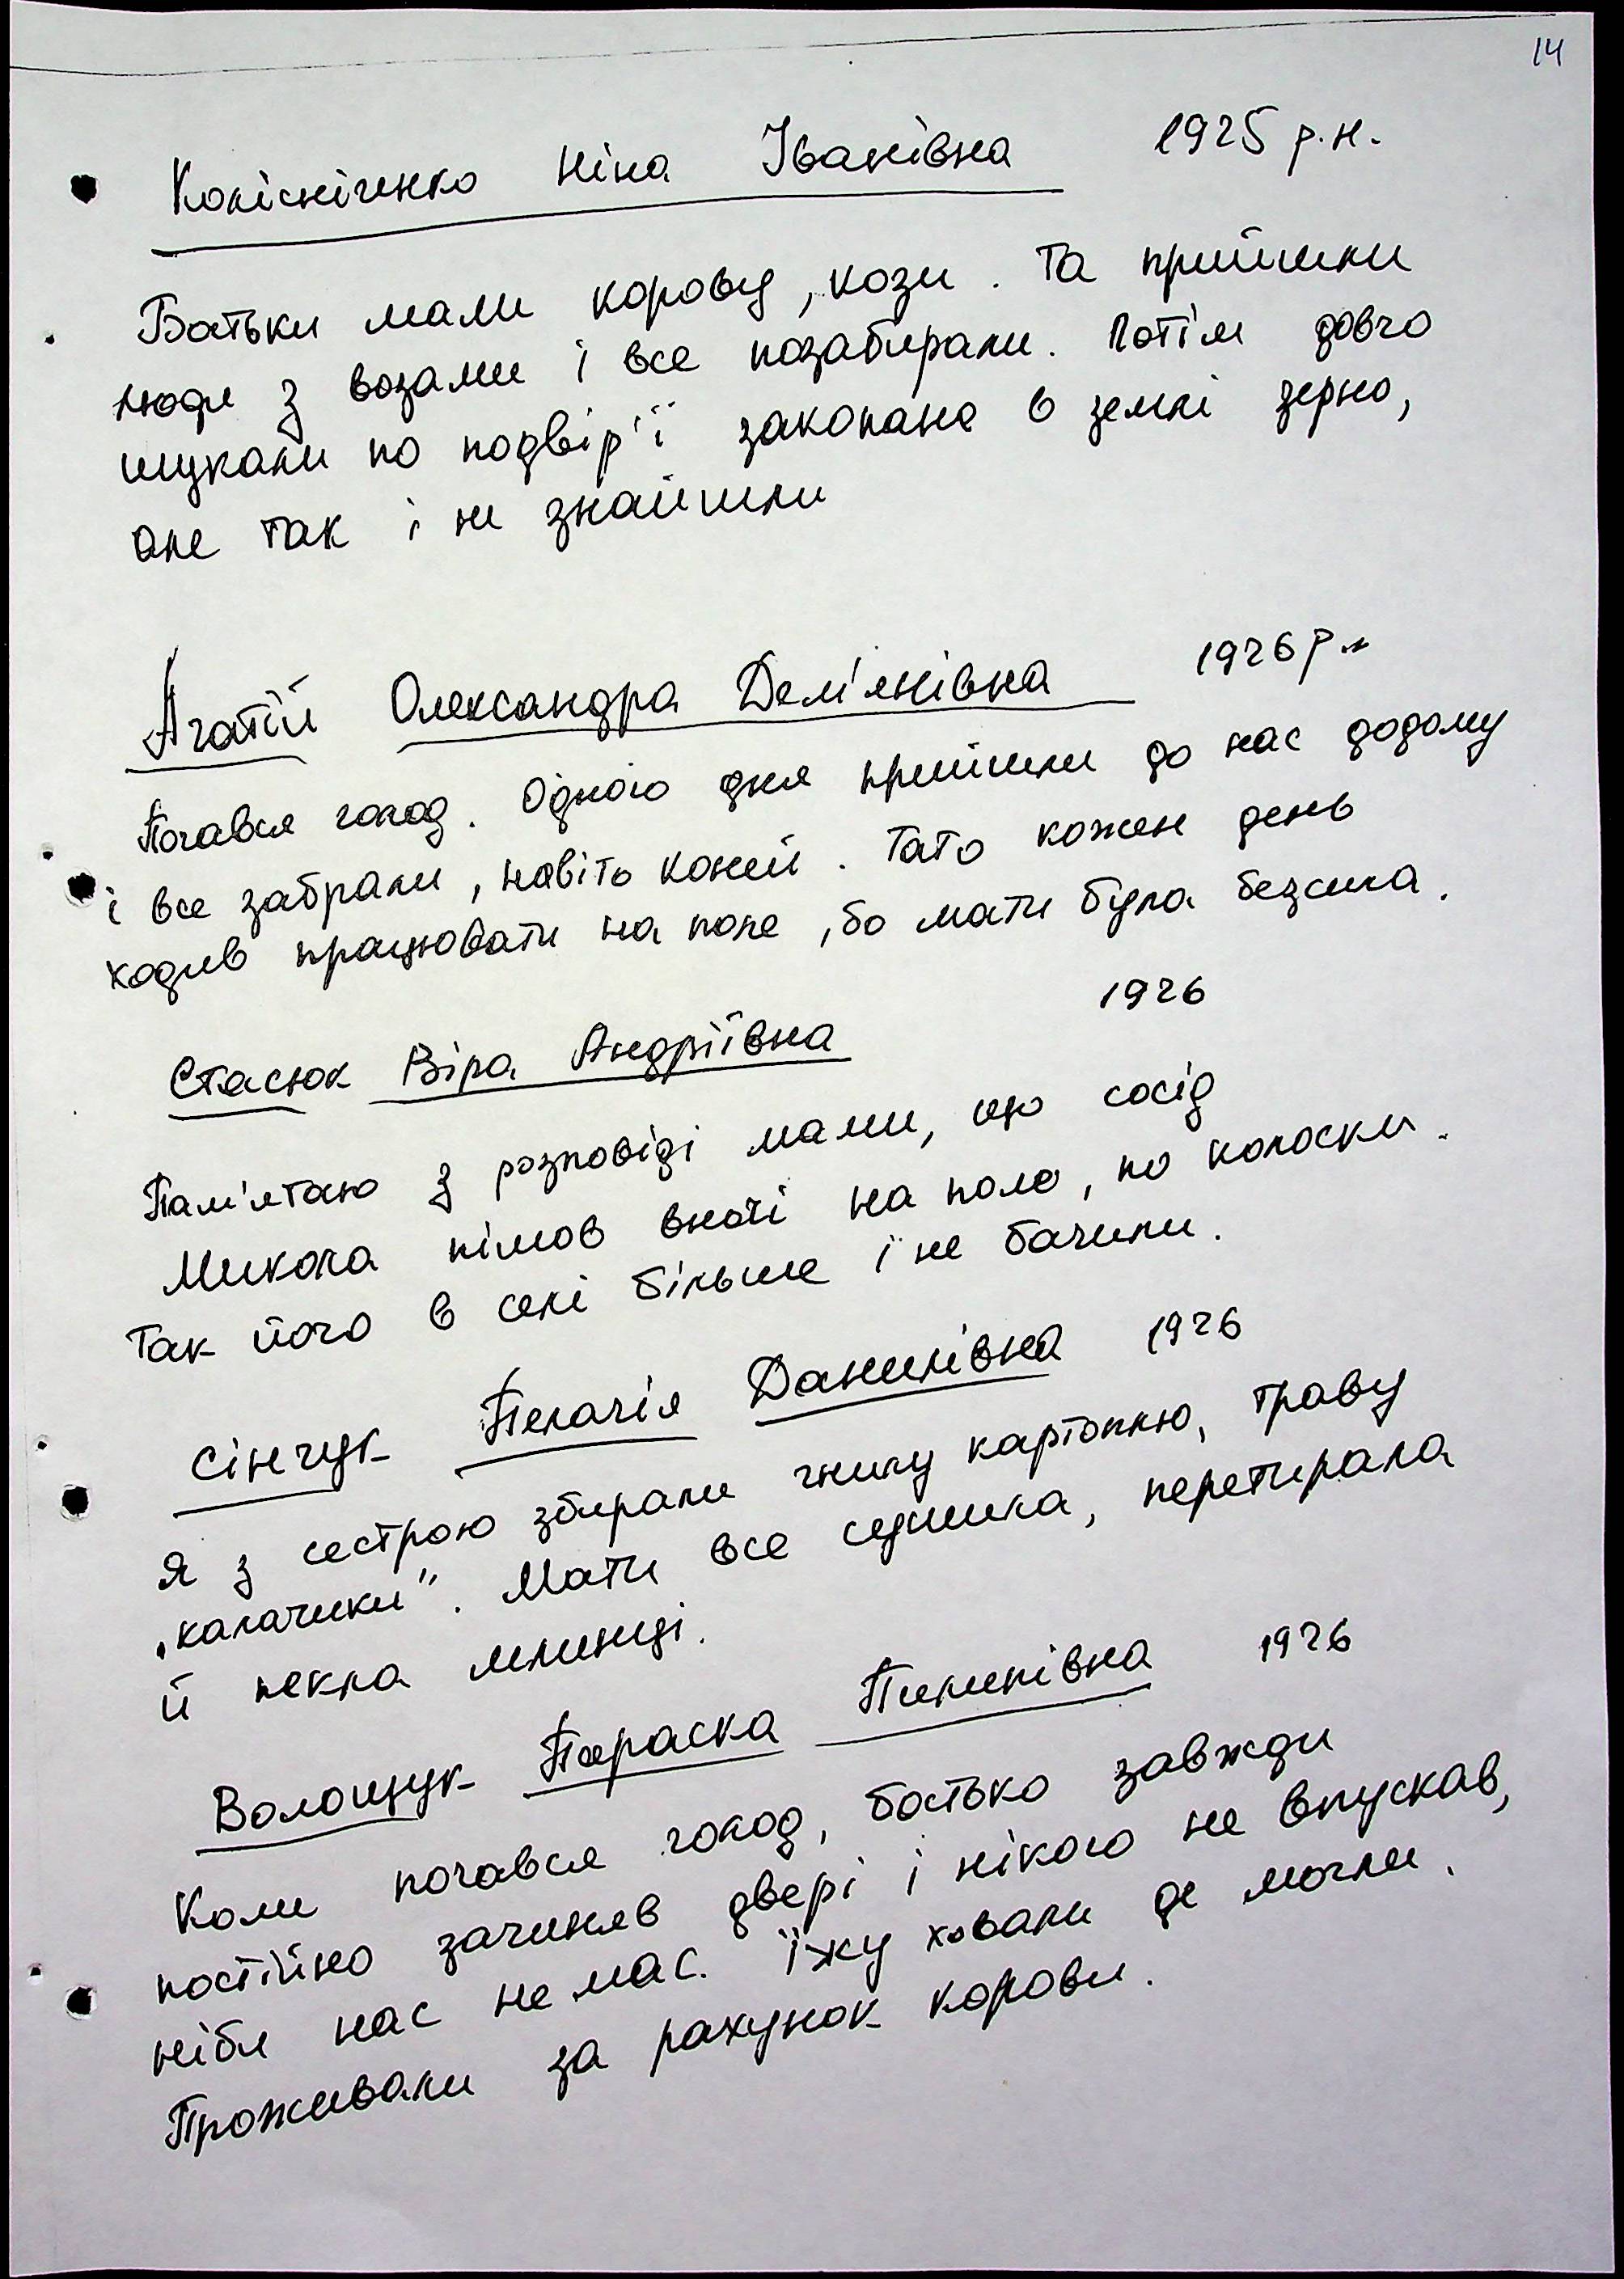 14
Колісніченко Ніна Іванівна 1925 р.н.
Батьки мали корову, кози. Та прийшли
люди з возами і все позабирали. Потім довго
шукали по подвір'ї закопане в землі зерно,
але так і не знайшли
Агатій Олександра Дем'янівна 1926 р.н
Почався голод. Одного дня прийшли до нас додому
і все забрали, навіть коней. Тато кожен день
ходив працювати на поле, бо мати була безсила.
Стасюк Віра Андріївна 1926
Пам'ятаю з розповіді мами, що сосід
Микола пішов вночі на поле, по колоски.
Так його в селі більше і не бачили.
Сінчук Пелагія Данилівна 1926
Я з сестрою збирали гнилу картоплю, траву
„калачики". Мати все сушила, перетирала
й пекла млинці.
Волощук Параска Пилипівна 1926
Коли почався голод, батько завжди
постійно зачиняв двері і нікого не впускав,
ніби нас немас. Їжу ховали де могли.
Проживали за рахунок корови.